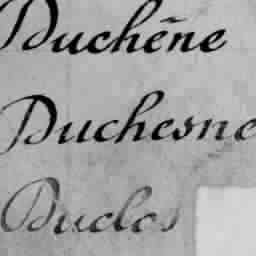 Duchêne
Duchesne
Duclos